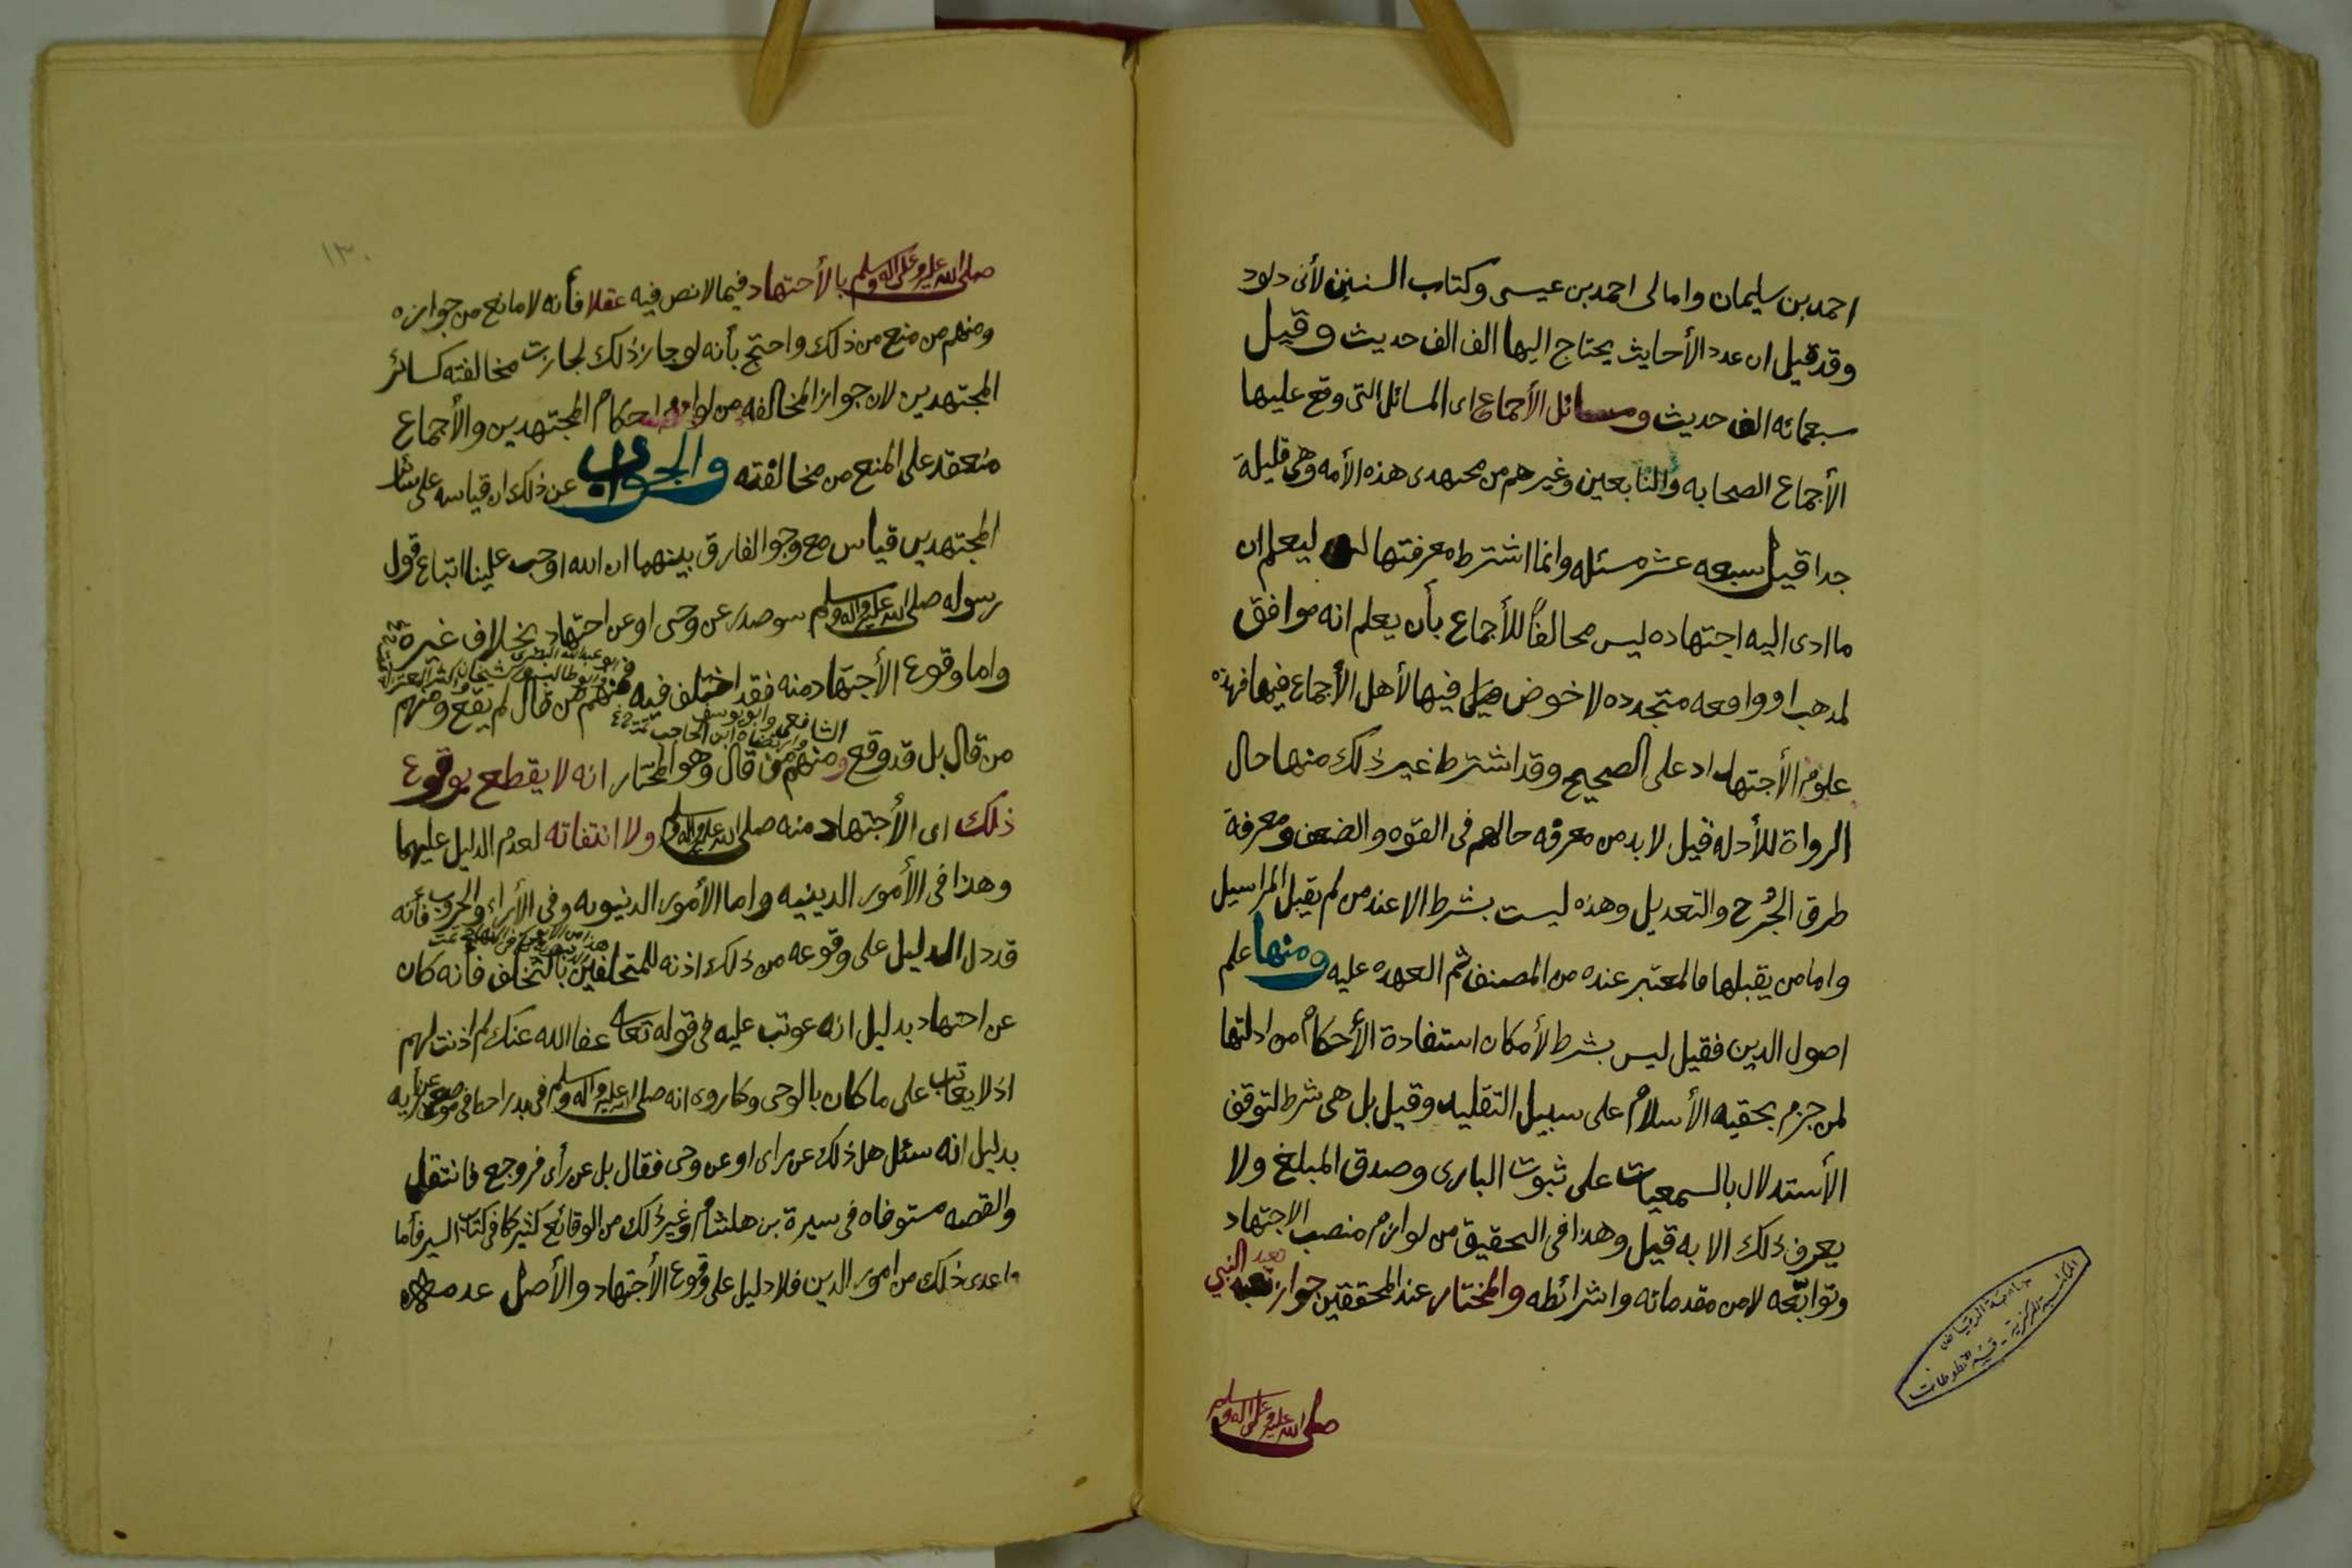 احمد بن سليمان وامالى احمد بن عيسى وكتاب السنين لأبى داود
وقد قيل ان عدد الأحاديث يحتاج اليها الف الف حديث وقيل
سبعمائه الف حديث ومسائل الأجماع اى المسائل التى وقع عليها
الأجماع الصحابه والتابعين وغيرهم من مجتهدى هذه الأمه وهى قليلة
جدا قيل سبعه عشر مسئله وانما اشترط معرفتها ليعلم ان
ما ادى اليه اجتهاده ليس مخالفاً للأجماع بأن يعلم انه موافق
لمذهب او واقعه متجدده لا خوض فيها لأهل الأجماع فيها فهذه
علوم الأجتهاد على الصحيح وقد اشترط غير ذلك منها حال
الرواة للأدله قيل لا بد من معرفه حالهم فى القوه والضعف ومعرفة
طرق الجُرح والتعديل وهذه ليست بشرط الا عند من لم يقبل المراسيل
واما من يقبلها فالمعتبر عنده من المصنف ثم العهده عليه ومنها علم
اصول الدين فقيل ليس بشرط لأمكان استفادة الأحكام من ادلتها
لمن جزم بحقيه الأسلام على سبيل التقليد وقيل بل هى شرط لتوقف
الأستدلال بالسمعيات على ثبوت البارى وصدق المبلغ ولا
يعرف ذلك الا به قيل وهذا فى التحقيق من لوازم منصب الاجتهاد
وتوابعه لا من مقدماته واشرائطه والمختار عند المحققين جواز تعبد النبي
صلى الله عليه وعلى اله وسلم
جامعة الرياض
المكتبة المركزية - قسم المخطوطات
١٣٠
صلى الله عليه وعلى اله وسلم بالأجتهاد فيما لا نص فيه عقلا فأنه لا مانع من جوازه
ومنهم من منع من ذلك واحتج بأنه لو جاز ذلك لجازت مخالفته كسائر
المجتهدين لان جواز المخالفه من لوازم احكام المجتهدين والأجماع
منعقد على المنع من مخالفته والجواب عن ذلك ان قياسه على سائر
المجتهدين قياس مع وجو الفارق بينهما ان الله اوجب علينا اتباع قول
رسوله صلى الله عليه واله وسلم سو صدر عن وحى او عن اجتهاد بخلاف غيره
واما وقوع الأجتهاد منه فقد اختلف فيه فمنهم من قال لم يقع ومنهم
الشافعى وابو يوسف
وارتضاه ابن الحاجب
من قال بل قد وقع ومنهم من قال وهو المختار انه لا يقطع بوقوع
ذلك اى الأجتهاد منه صلى الله عليه واله وسلم ولا انتفائه لعدم الدليل عليهما
وهذا فى الأمور الدينيه واما الأمور الدنيويه وفى الأراء والحروب فأنه
قد دل الدليل على وقوعه من ذلك اذنه للمتخلفين بالتخلف فأنه كان
عن اجتهاد بدليل انه عوتب عليه فى قوله تعالى عفا الله عنك لم اذنت لهم
اذ لا يعاتب على ما كان بالوحى وكما روى انه صلى الله عليه واله وسلم فى بدر
بدليل انه سئل هل ذلك عن راى او عن وحى فقال بل عن رأى فروجع فانتقل
والقصه مستوفاه فى سيرة بن هشام وغير ذلك من الوقائع كثير كما فى كتاب السير فأما
ما عدى ذلك من امور الدين فلا دليل على وقوع الأجتهاد والأصل عدمه